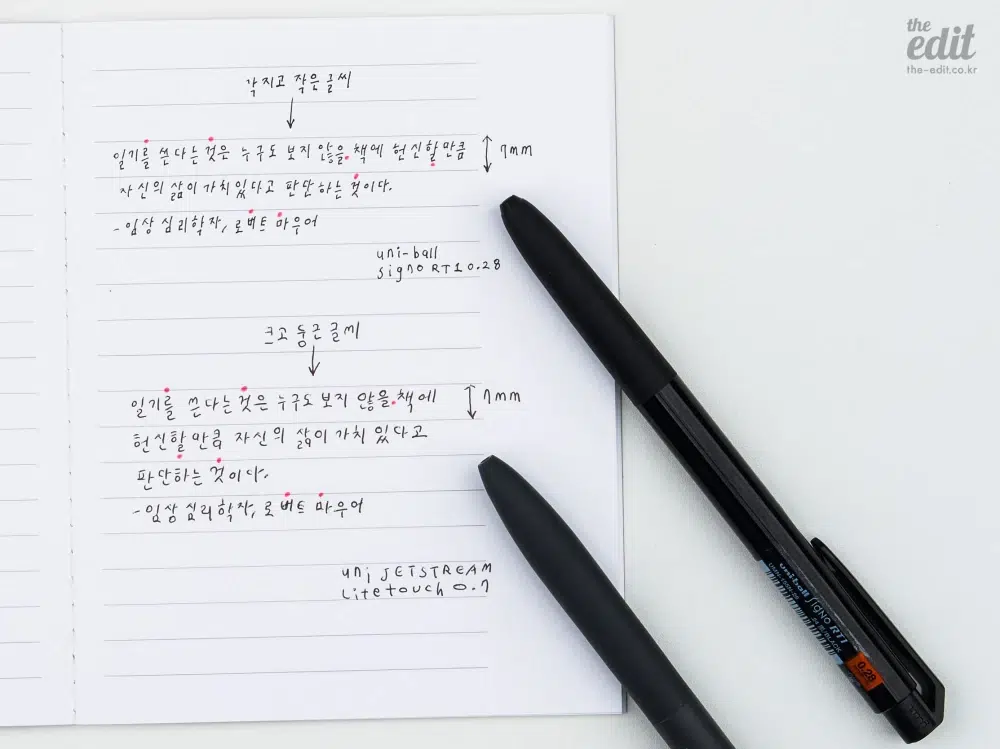 the
edit
the-edit.co.kr
각지고 작은 글씨
일기를 쓴다는 것은 누구도 보지 않을 책에 헌신할 만큼
7mm
자신의 삶이 가치있다고 판단하는 것이다.
- 임상 심리학자, 로버트 마우어
uni-ball
signo RT1 0.28
크고 둥근 글씨
일기를 쓴다는 것은 누구도 보지 않을 책에
7mm
헌신할 만큼 자신의 삶이 가치 있다고
판단하는 것이다.
- 임상 심리학자, 로버트 마우어
uni JETSTREAM
Lite touch 0.7
uni-ball Signo RT1
0.28